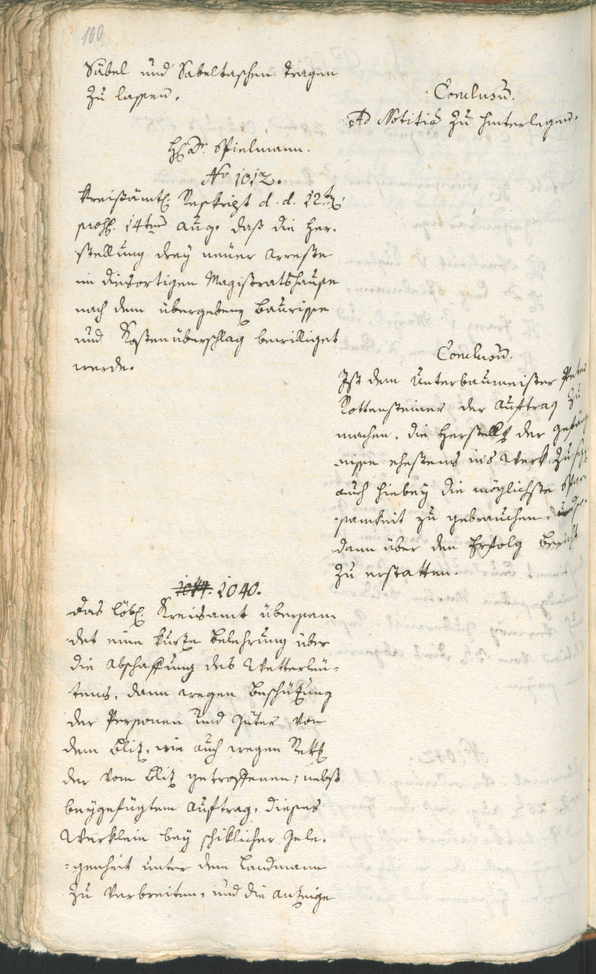 100.
Säbel und Säbeltaschen tragen
zu lassen.
Conclusū.
Ad Notitia zu hinterlegen.
H: Dr. Spielmann.
No 1012.
Kreisämtl. Reskript d. d. 12ten
14ten Aug. daß die Her-
stellung drey neüer Arreste
im diesortigen Magistratshause
nach dem übergebenen Baurisse
und Kostenüberschlag bewilliget
werde.
Conclusū.
Ist dem Unterbaumeister Peter
Rottensteiner der Auftrag zu
machen, die Herstellg der Gefäng-
nisse ehestens ins Werk zu
auch hiebey die möglichste Spar-
samkeit zu gebrauchen
dann über den Erfolg Bericht
zu erstatten.
1040.
Das löbl. Kreisamt übersen-
det eine kurze Belehrung über
die Abschaffung des Wetterleü-
tens, dann wegen Beschützung
der Personen und Güter von
dem Blitz, wie auch wegen Rettg
der vom Blitz getroffenen; nebst
beygefügtem Auftrag, dieses
Werklein bey schiklicher Gele-
:genheit unter dem Landmann
zu verbreiten, und die Anzeige